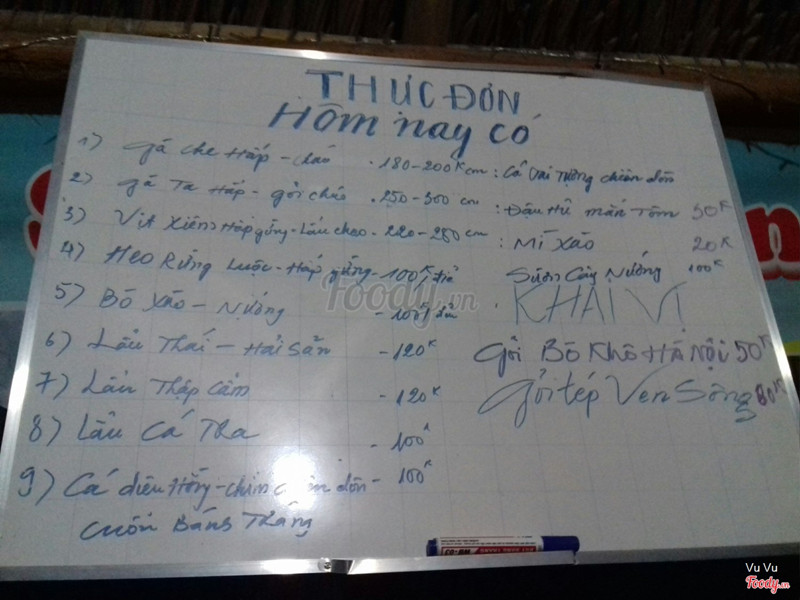 THỰC ĐƠN
Hôm nay có
1) gà che Hấp - cháo . 180-200K cm
2) gà Ta Hấp - gỏi cháo . 250-300 cm
3) Vịt Xiêm Hấp gừng - Lẩu chao - 220-280 cm
4) Heo Rừng Luộc - Hấp gừng - 100K/đĩa
5) Bò Xào - Nướng - 100K/đĩa
6) Lẩu Thái - Hải Sản - 120K
7) Lẩu Thập Cẩm - 120K
8) Lẩu Cá - 100K
9) Cá diêu Hồng - chiên dòn - 100K
cuốn Bánh Tráng
: Cá tai Tượng chiên dòn
: Đậu Hủ mắn Tôm 50K
: MÌ XÀO 20K
Sườn Cây Nướng 100K
KHAI VỊ
Gỏi Bò Khô HÀ NỘI 50K
Gỏi tép Ven Sông 80K
Foody.vn
Vu Vu
Foody.vn